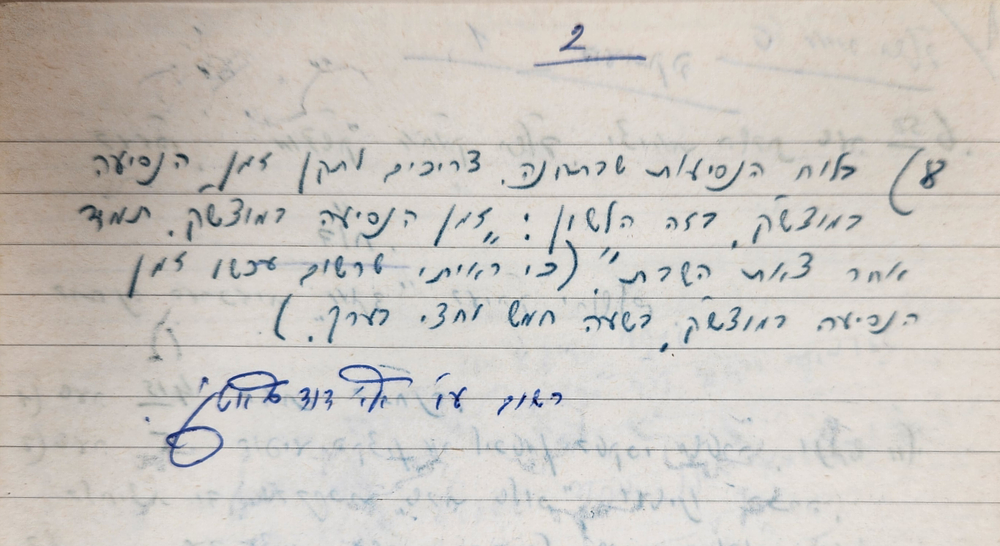 2
ט) בלוח הנסיעות שבתחנה, צריכים לתקן זמן הנסיעה
במוצש"ק, בזה הלשון: "זמן הנסיעה במוצש"ק, תמיד
אחר צאת השבת" (כי ראיתי שרשום עכשו זמן
הנסיעה במוצש"ק, בשעה חמש וחצי בערך.)
רשום ע"י דוד